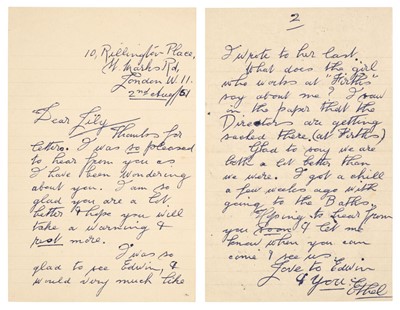 10, Rillington Place,
St Marks Rd,
London W. 11.
2nd Aug/51
Dear Lily
Thanks for
letters. I was so pleased
to hear from you as
I have been wondering
about you. I am so
glad you are a lot
better & hope you will
take a warning &
rest more.
I was so
glad to see Edwin, &
would very much like
2
I wrote to her last.
What does the girl
who works at "Firths"
say about me? I saw
in the paper that the
Directors are getting
sacked there. (at Firths)
Glad to say we are
both a lot better than
we were. I got a chill
a few weeks ago with
going to the Baths.
Hoping to hear from
you soon & let me
know when you can
come & see us
Love to Edwin
& You
Ethel